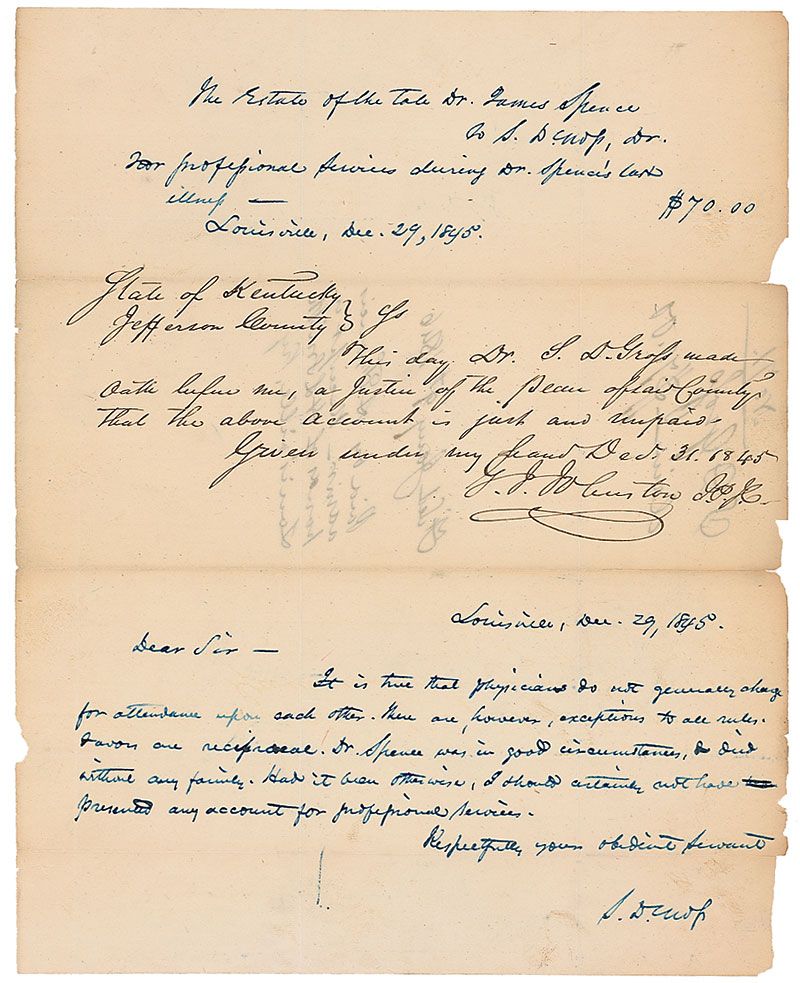 The Estate of the late Dr. James Spence
to S. D. Gross, Dr.
For professional services during Dr. Spence's last
illness —
$70.00
Louisville, Dec. 29, 1845.
State of Kentucky
Jefferson County } Ss
This day Dr. S. D. Gross made
Oath before me, a Justice of the peace of said County
that the above account is just and unpaid.
Given under my hand Dec. 31. 1845
Johnston J.P.J.C.
Louisville, Dec. 29, 1845.
Dear Sir —
It is true that physicians do not generally charge
for attendance upon each other. There are, however, exceptions to all rules.
Favors are reciprocal. Dr. Spence was in good circumstances, & died
without any family. Had it been otherwise, I should certainly not have
presented any account for professional services.
Respectfully your obedient servant
S. D. Gross